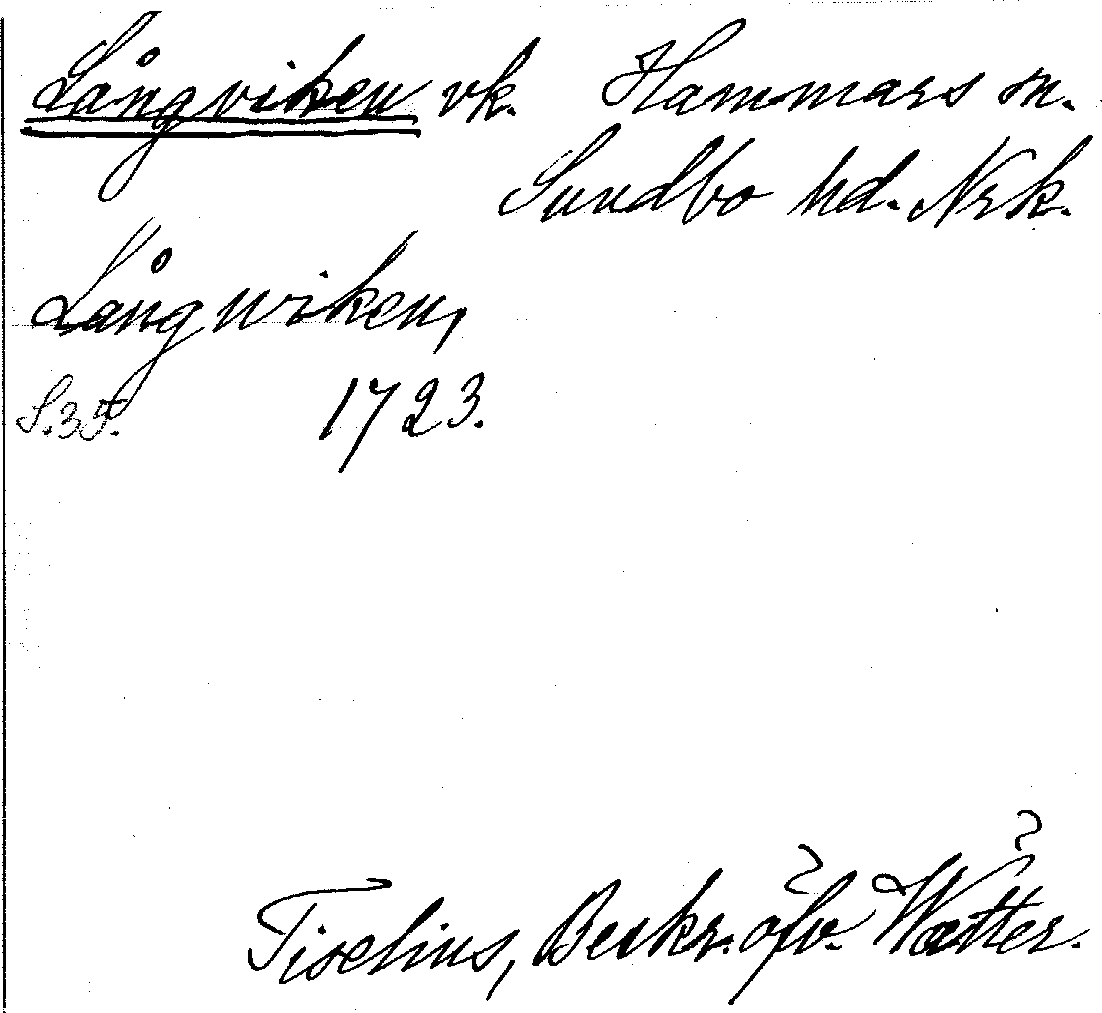 Långviken vk. Hammars sn.
Sundbo hd. Nrk.
Långwiken,
S. 35. 1723.
Tiselius, Beskr. öfv. Wätter.